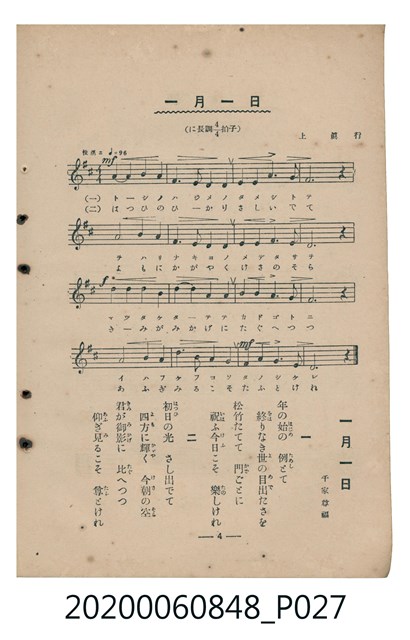 一月一日
(に長調4/4拍子)
上眞行
♩=96
mf
(一) トーシノハ ジメノタメシトテ
(二) はつひのひ ーかりさしいでて
ヲハリナキヨノメデタサヲ
よもにかがやくけさのそら
マツタケターテテカドゴトニ
きーみがみかげにたぐへつつ
mf
イハフケフコソタノシケレ
あふぎみるこそたふとけれ
一月一日
千家尊福
一
年の始の 例とて
終りなき世の目出たさを
松竹たてて 門ごとに
祝ふ今日こそ 樂しけれ
二
初日の光 さし出でて
四方に輝く 今朝の空
君が御影に 比へつつ
仰ぎ見るこそ 尊とけれ
— 4 —
20200060848_P027